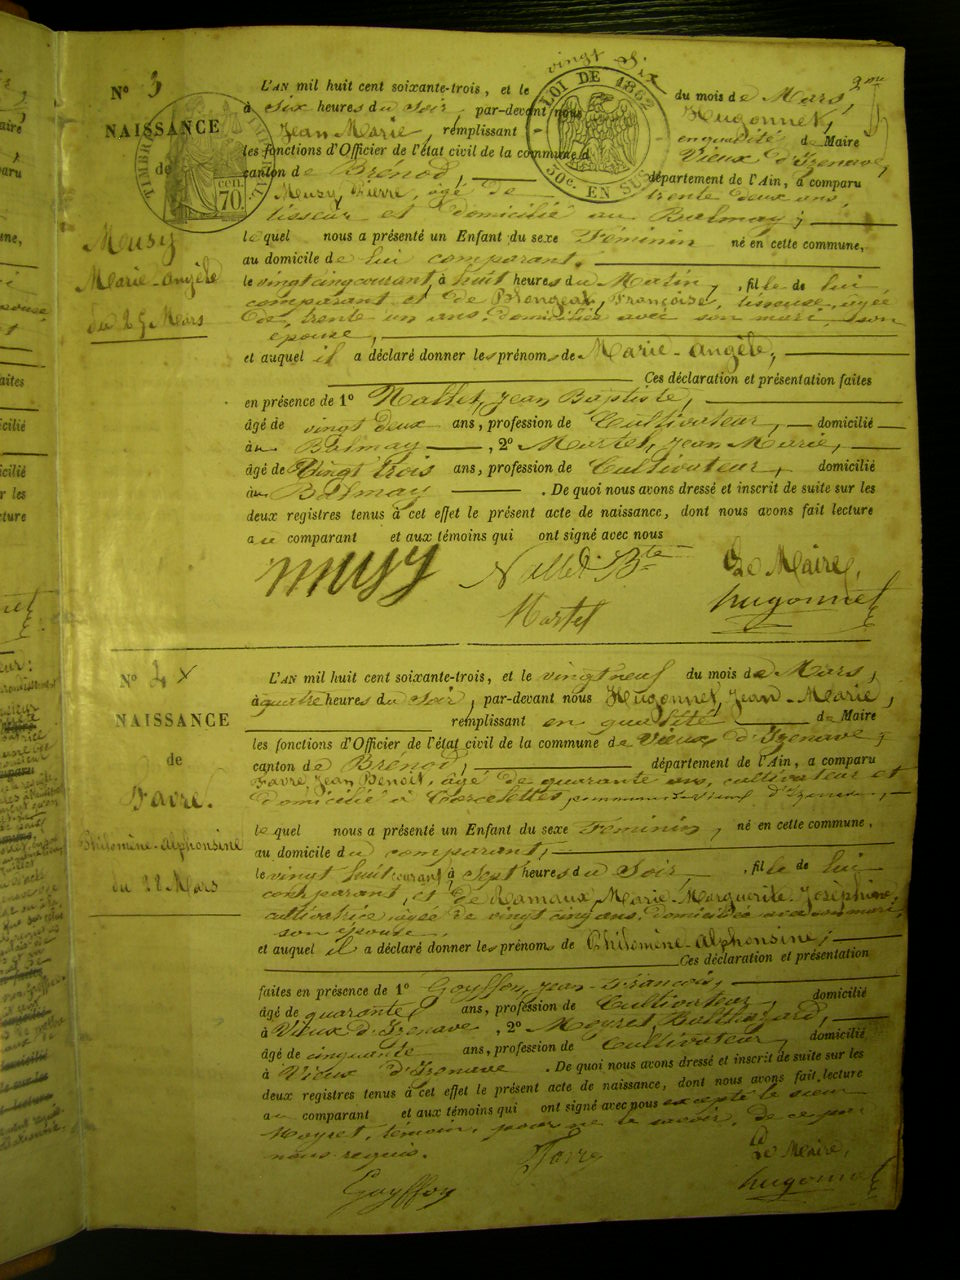 vingt Six
N° 3
L'AN mil huit cent soixante-trois, et le du mois de Mars,
à six heures du Soir, par-devant nous Hugonnet,
NAISSANCE
Jean Marie, remplissant en qualité de Maire
de
les fonctions d'Officier de l'état civil de la commune d Vieux d'Izenave,
canton de Brénod, département de l'Ain, a comparu
TIMBRE IMPÉRIAL
CEN. 70.
LOI DE 1862
50c. EN SUS
Musy Pierre, âgé de trente deux ans,
tisseur et domicilié au Balmay;
Musy
Marie-Angèle
du 25 Mars
lequel nous a présenté un Enfant du sexe Féminin né en cette commune,
au domicile de lui comparant.
le vingt cinq courant, à huit heures du Matin, fille de lui,
comparant et de Françoise, tisseuse, agée
de trente un ans, domiciliée avec son mari, son
épouse,
et auquel il a déclaré donner les prénoms de Marie-Angèle,
Ces déclaration et présentation faites
en présence de 1° Nallet, Jean Baptiste,
âgé de vingt deux ans, profession de Cultivateur, domicilié
au Balmay, 2° Martet, Jean Marie,
âgé de Vingt trois ans, profession de Cultivateur, domicilié
au Balmay. De quoi nous avons dressé et inscrit de suite sur les
deux registres tenus à cet effet le présent acte de naissance, dont nous avons fait lecture
au comparant et aux témoins qui ont signé avec nous
musy Nallet Bte Le Maire,
Martet hugonnet
N° 4 x
L'AN mil huit cent soixante-trois, et le vingt neuf du mois de Mars,
à quatre heures du Soir, par-devant nous Hugonnet, Jean-Marie,
NAISSANCE
remplissant en qualité de Maire
les fonctions d'Officier de l'état civil de la commune de Vieux d'Izenave,
de
canton de Brenod, département de l'Ain, a comparu
Favre Jean Benoit, âgé de quarante ans, cultivateur et
Favre.
domicilié à Corcelettes, commune de Vieux d'Izenave,
Philomène-Alphonsine
du 28 Mars
lequel nous a présenté un Enfant du sexe Féminin, né en cette commune,
au domicile du comparant,
le vingt huit courant à sept heures du Soir, fille de lui
comparant, et de Ramaux Marie-Marguerite-Joséphine,
cultivatrice agée de vingt cinq ans, domiciliée avec son mari,
son épouse.
et auquel il a déclaré donner les prénoms de Philomène-Alphonsine,
Ces déclaration et présentation
faites en présence de 1° Goyffon, Jean-François,
âgé de quarante ans, profession de Cultivateur, domicilié
à Vieux d'Izenave, 2° Moyret, Balthazard,
âgé de cinquante ans, profession de Cultivateur, domicilié
à Vieux d'Izenave. De quoi nous avons dressé et inscrit de suite sur les
deux registres tenus à cet effet le présent acte de naissance, dont nous avons fait lecture
au comparant et aux témoins qui ont signé avec nous excepté le sieur
Moyret, témoin, pour ne le savoir, de ce par
nous requis.
Favre Le Maire,
Goyffon hugonnet